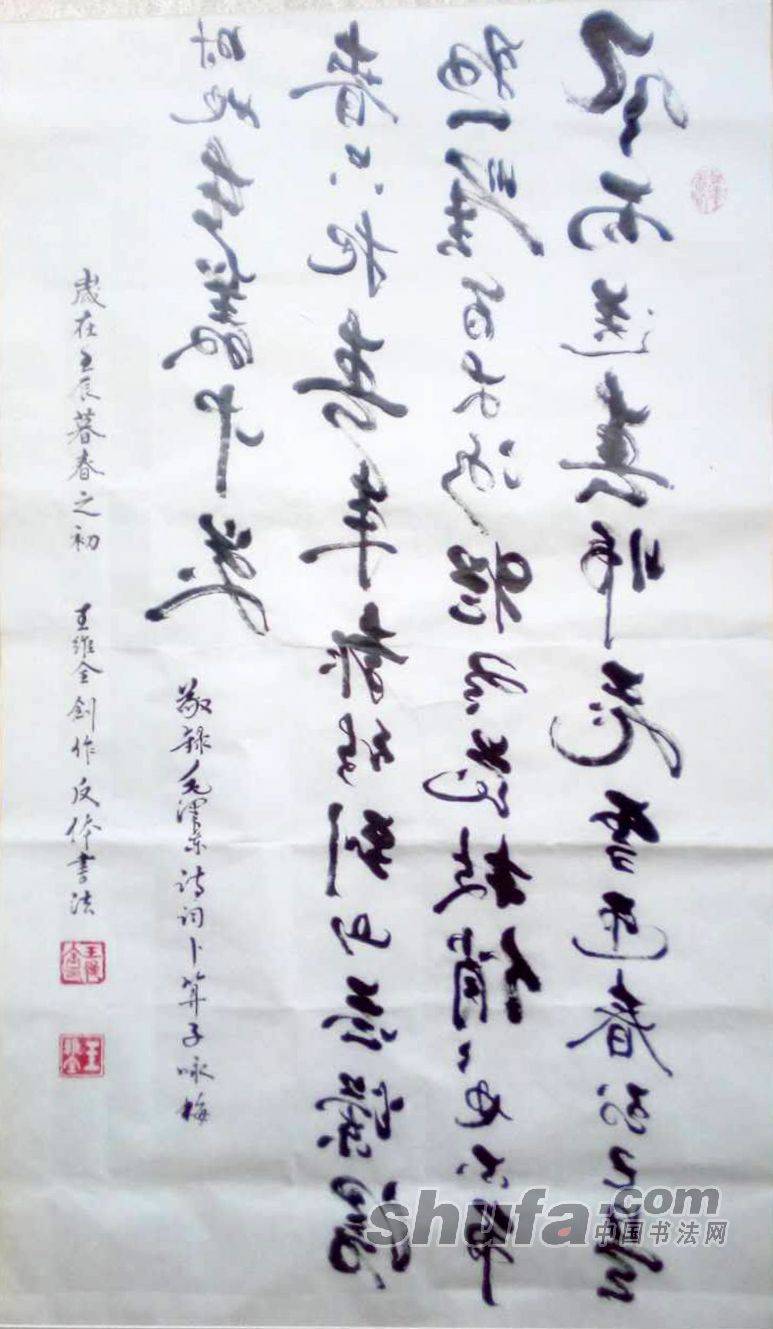 风雨送春归飞雪迎春到已是悬
崖百丈冰犹有花枝俏俏也不争
春只把春来报待到山花烂漫
时她在丛中笑
敬録毛泽东诗词卜算子咏梅
歲在壬辰暮春之初 王维全創作反体書法
shufa.com
中国书法网